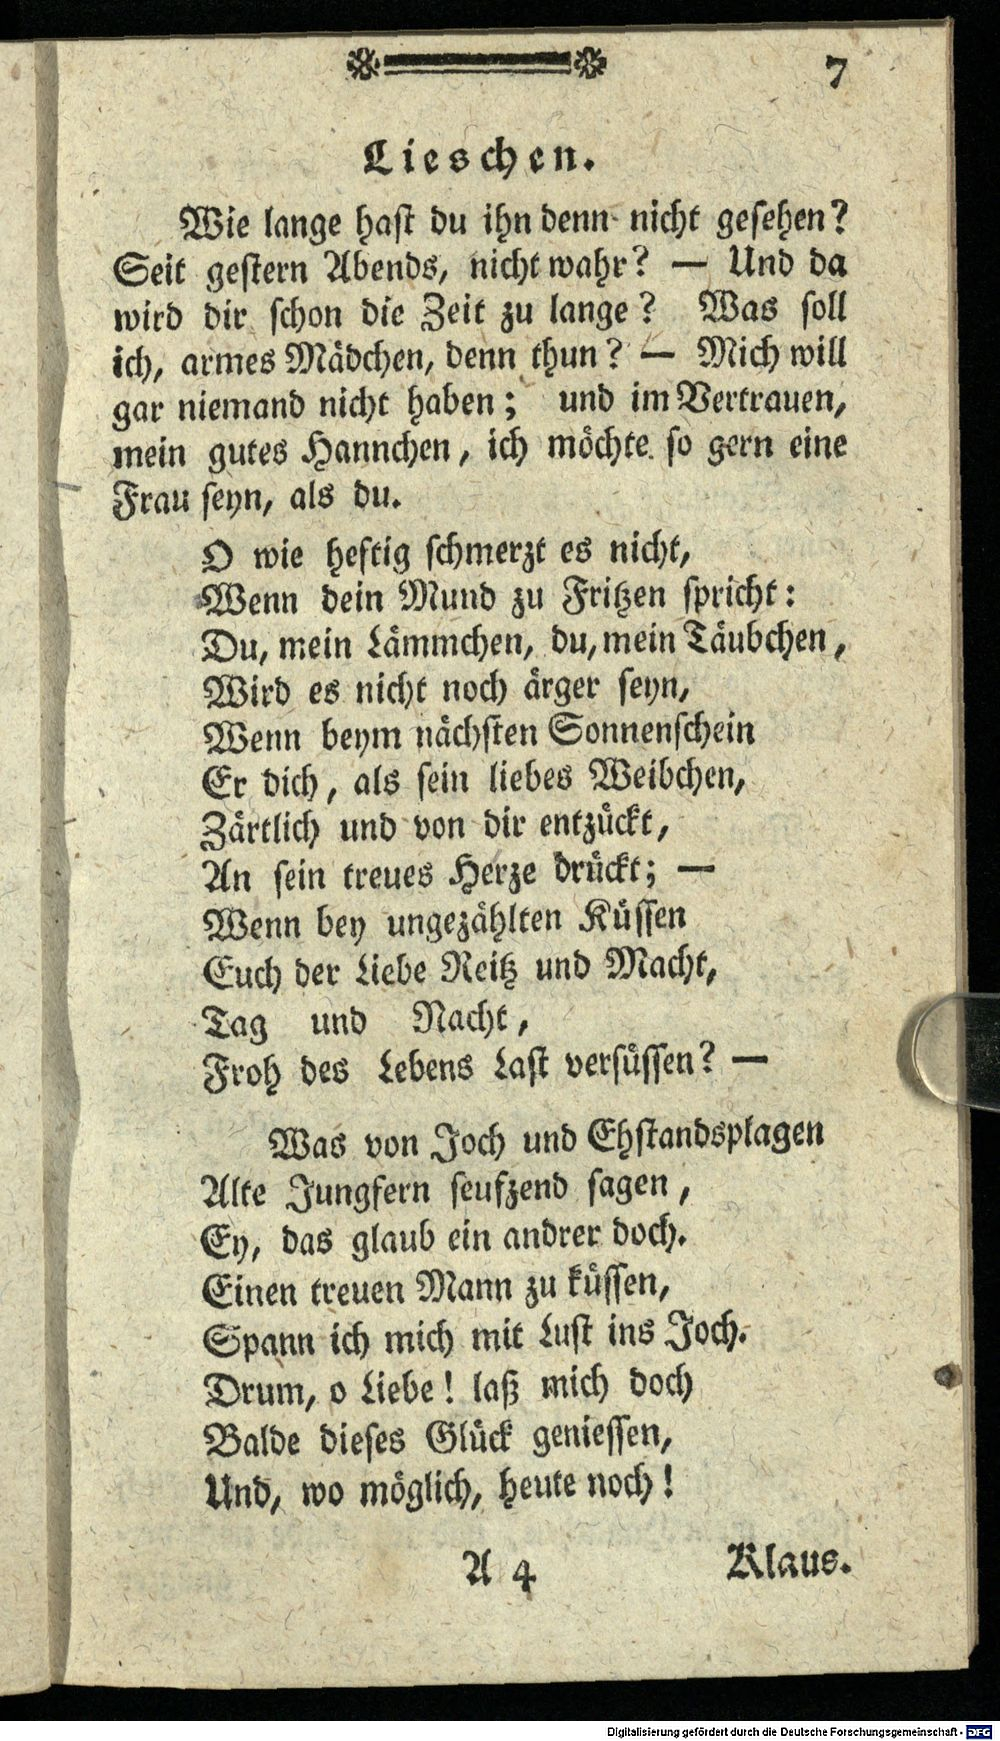 7
Lieschen.
Wie lange hast du ihn denn nicht gesehen?
Seit gestern Abends, nicht wahr? — Und da
wird dir schon die Zeit zu lange? Was soll
ich, armes Mädchen, denn thun? — Mich will
gar niemand nicht haben; und im Vertrauen,
mein gutes Hannchen, ich möchte so gern eine
Frau seyn, als du.
O wie heftig schmerzt es nicht,
Wenn dein Mund zu Fritzen spricht:
Du, mein Lämmchen, du, mein Täubchen,
Wird es nicht noch ärger seyn,
Wenn beym nächsten Sonnenschein
Er dich, als sein liebes Weibchen,
Zärtlich und von dir entzückt,
An sein treues Herze drückt; —
Wenn bey ungezählten Küssen
Euch der Liebe Reitz und Macht,
Tag und Nacht,
Froh des Lebens Last versüssen? —
Was von Joch und Ehstandsplagen
Alte Jungfern seufzend sagen,
Ey, das glaub ein andrer doch.
Einen treuen Mann zu küssen,
Spann ich mich mit Lust ins Joch.
Drum, o Liebe! laß mich doch
Balde dieses Glück geniessen,
Und, wo möglich, heute noch!
A 4 Klaus.
Digitalisierung gefördert durch die Deutsche Forschungsgemeinschaft - DFG